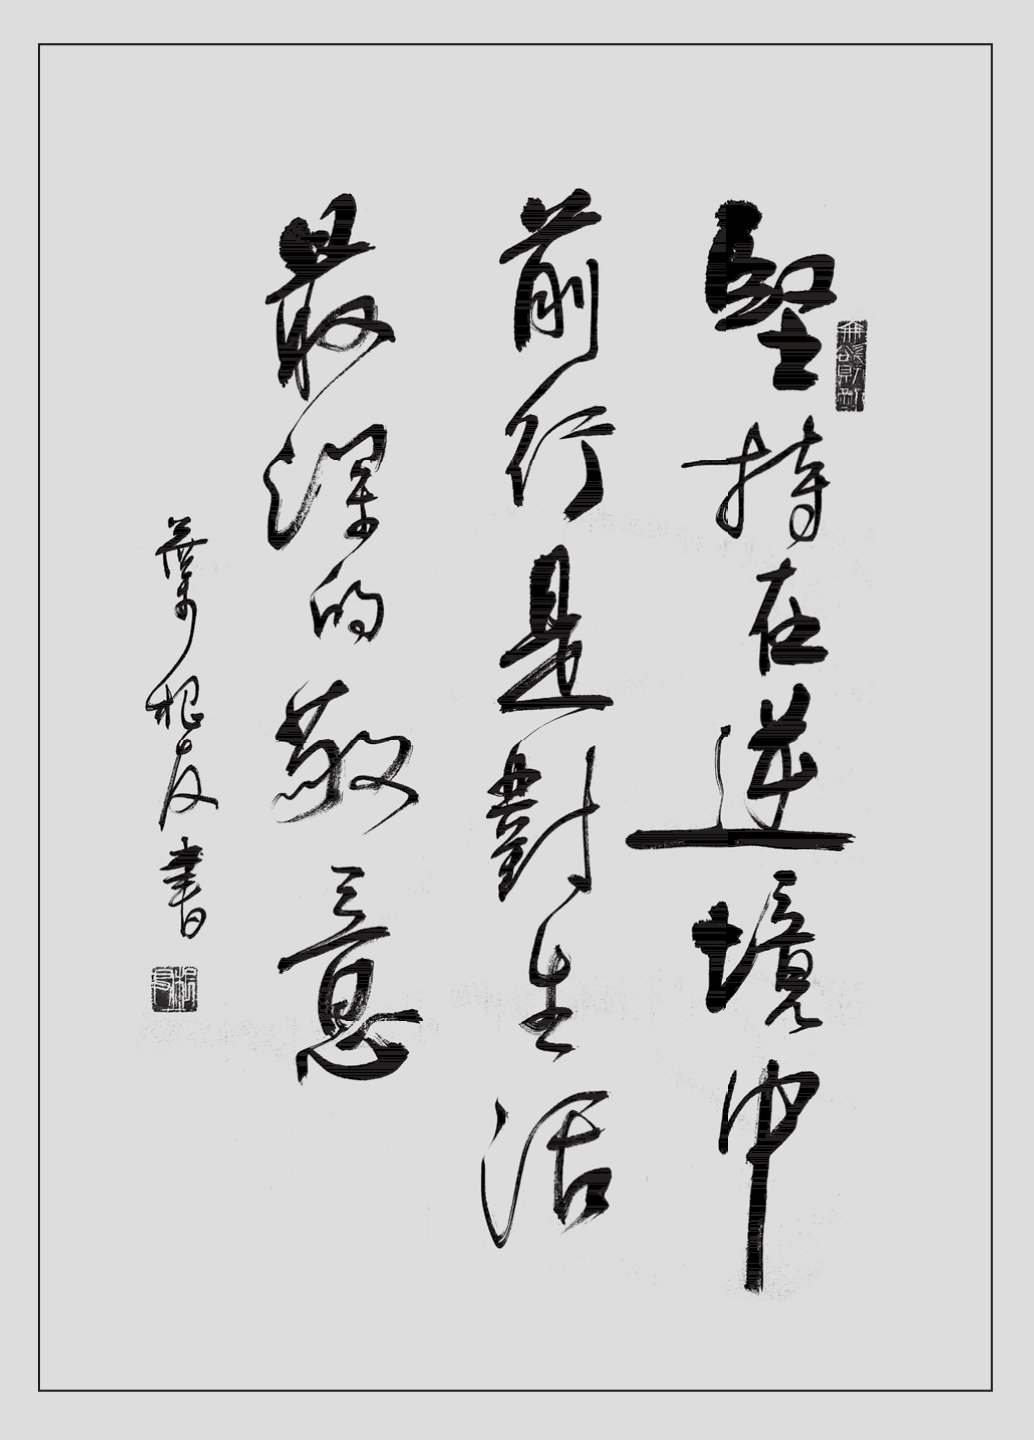 堅持在逆境中
無欲則剛
前行是對生活
最深的敬意
葉根友書